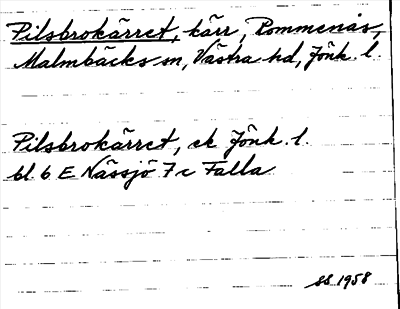 Pilsbrokärret, kärr, Pommenås,
Malmbäcks sn, Västra hd, Jönk. l.
Pilsbrokärret, ek Jönk. l.
bl. 6 E Nässjö 7 c Falla
SS 1958